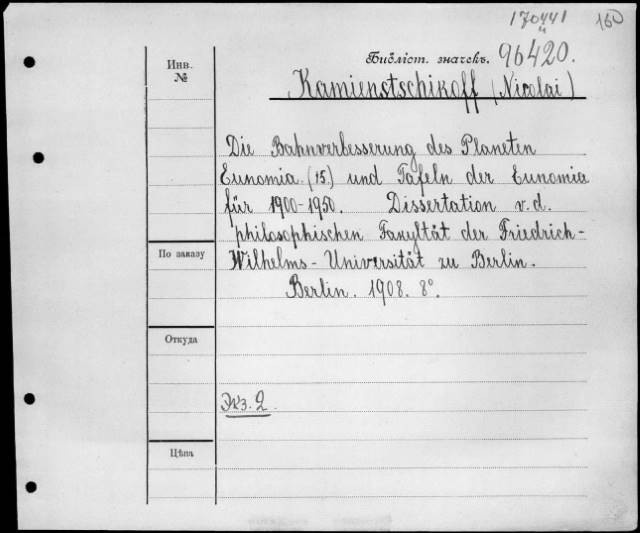 170441
"
160
Инв.
№
Библіот. значекъ. 96420.
Kamienstschikoff (Nicolai)
Die Bahnverbesserung des Planeten
Eunomia (15) und Tafeln der Eunomia
für 1900-1950. Dissertation v. d.
philosophischen Fakultät der Friedrich-
Wilhelms-Universität zu Berlin.
Berlin. 1908. 8°.
По заказу
Откуда
Экз. 2
Цѣна